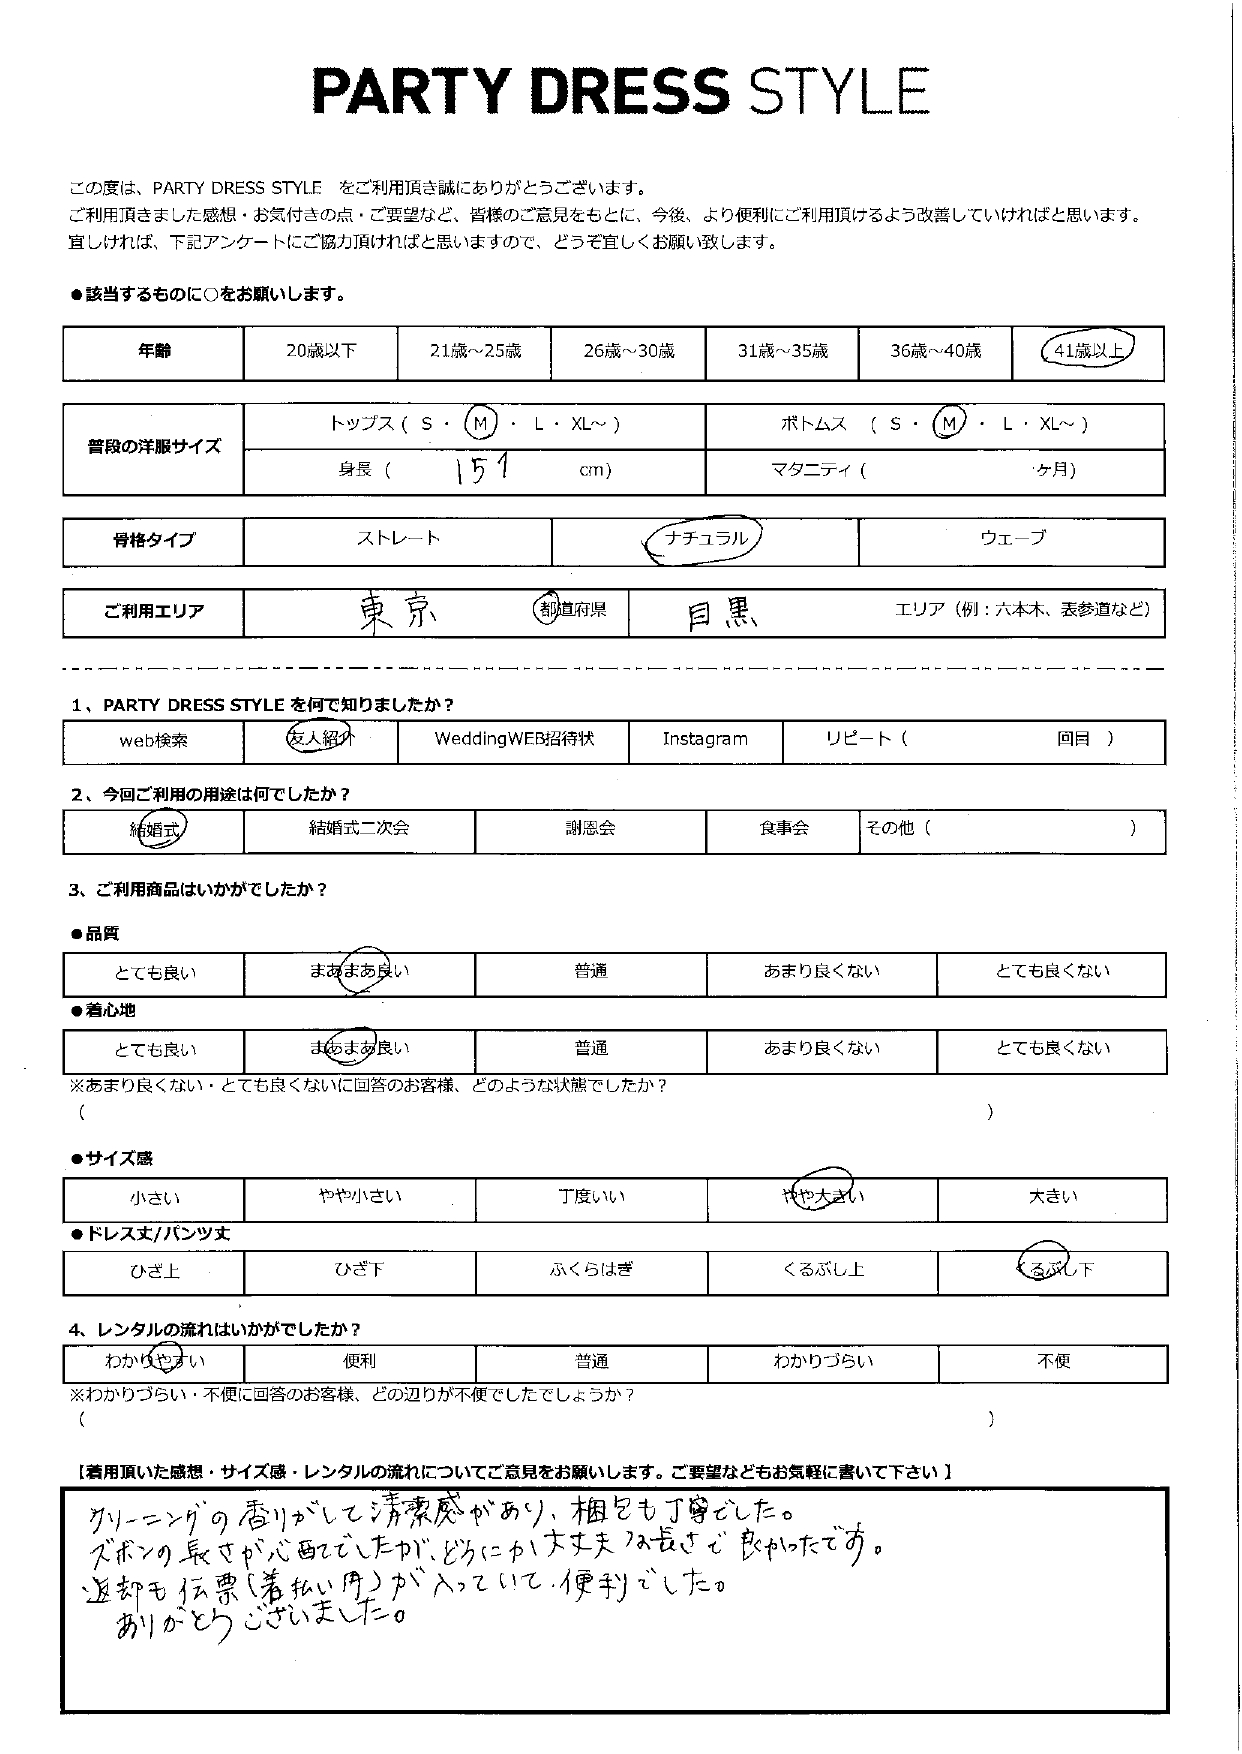 PARTY DRESS STYLE
この度は、PARTY DRESS STYLE をご利用頂き誠にありがとうございます。
ご利用頂きました感想・お気付きの点・ご要望など、皆様のご意見をもとに、今後、より便利にご利用頂けるよう改善していければと思います。
宜しければ、下記アンケートにご協力頂ければと思いますので、どうぞ宜しくお願い致します。
●該当するものに○をお願いします。
年齢 20歳以下 21歳～25歳 26歳～30歳 31歳～35歳 36歳～40歳 41歳以上
普段の洋服サイズ
トップス ( S ・ M ・ L ・ XL～ ) ボトムス ( S ・ M ・ L ・ XL～ )
身長 ( 157 cm) マタニティ ( ヶ月)
骨格タイプ ストレート ナチュラル ウェーブ
ご利用エリア 東京 都道府県 目黒 エリア（例：六本木、表参道など）
1、PARTY DRESS STYLE を何で知りましたか？
web検索 友人紹介 WeddingWEB招待状 Instagram リピート ( 回目 )
2、今回ご利用の用途は何でしたか？
結婚式 結婚式二次会 謝恩会 食事会 その他 ( )
3、ご利用商品はいかがでしたか？
●品質
とても良い まあまあ良い 普通 あまり良くない とても良くない
●着心地
とても良い まあまあ良い 普通 あまり良くない とても良くない
※あまり良くない・とても良くないに回答のお客様、どのような状態でしたか？
( )
●サイズ感
小さい やや小さい 丁度いい やや大きい 大きい
●ドレス丈/パンツ丈
ひざ上 ひざ下 ふくらはぎ くるぶし上 くるぶし下
4、レンタルの流れはいかがでしたか？
わかりやすい 便利 普通 わかりづらい 不便
※わかりづらい・不便に回答のお客様、どの辺りが不便でしたでしょうか？
( )
【着用頂いた感想・サイズ感・レンタルの流れについてご意見をお願いします。ご要望などもお気軽に書いて下さい 】
クリーニングの香りがして清潔感があり、梱包も丁寧でした。
ズボンの長さが心配でしたが、どうにか大丈夫な長さで良かったです。
返却も伝票(着払い用)が入っていて、便利でした。
ありがとうございました。